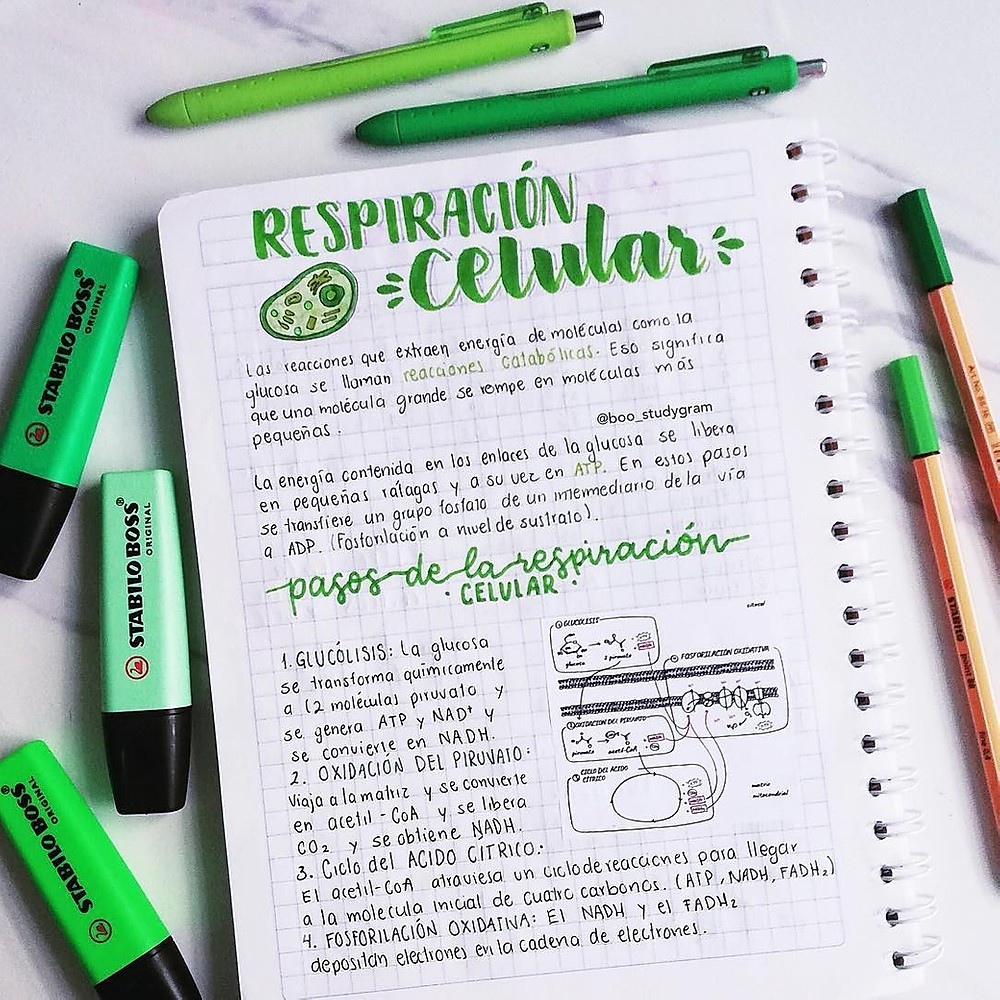 RESPIRACIÓN
Celular
Las reacciones que extraen energía de moléculas como la
glucosa se llaman reacciones catabólicas. Eso significa
que una molécula grande se rompe en moléculas más
pequeñas.
@boo_studygram
La energía contenida en los enlaces de la glucosa se libera
en pequeñas ráfagas y a su vez en ATP. En estos pasos
se transfiere un grupo fosfato de un intermediario de la vía
a ADP. (Fosforilación a nivel de sustrato).
pasos de la respiración
CELULAR
1. GLUCÓLISIS: La glucosa
se transforma químicamente
a (2 moléculas piruvato y
se genera ATP y NAD+ y
se convierte en NADH.
2. OXIDACIÓN DEL PIRUVATO:
Viaja a la matriz y se convierte
en acetil-CoA y se libera
CO2 y se obtiene NADH.
3. Ciclo del ACIDO CITRICO:
El acetil-CoA atraviesa un ciclo de reacciones para llegar
a la molecula inicial de cuatro carbonos. (ATP, NADH, FADH2)
4. FOSFORILACIÓN OXIDATIVA: El NADH y el FADH2
depositan electrones en la cadena de electrones.
GLUCOLISIS
glucosa
2 piruvato
citosol
FOSFORILACIÓN OXIDATIVA
OXIDACION DEL PIRUVATO
piruvato
acetil-CoA
CICLO DEL ACIDO
CITRICO
matriz
mitocondrial
STABILO BOSS®
ORIGINAL
STABILO BOSS®
ORIGINAL
STABILO BOSS®
ORIGINAL
STABILO
point 88